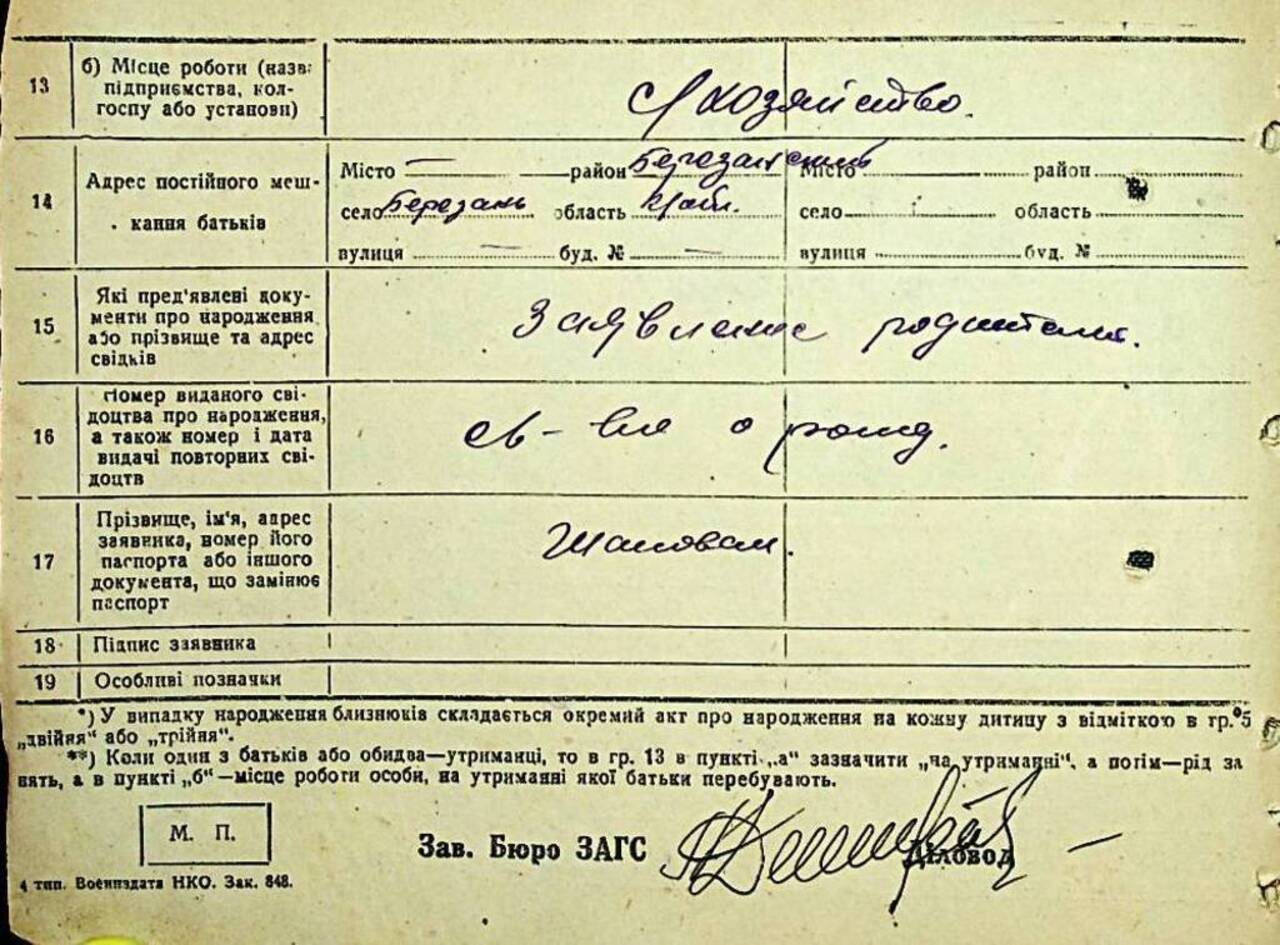 13
б) Місце роботи (назв:
підприємства, кол-
госпу або установи)
с/хозяйство.
14
Адрес постійного меш-
кання батьків
Місто — район Березанский Місто район
село Березань область село область
вулиця — буд. № — вулиця буд. №
15
Які пред'явлені доку-
менти про народження
або прізвище та адрес
свідків
Заявление родители.
16
Номер виданого сві-
доцтва про народження,
а також номер і дата
видачі повторних сві-
доцтв
св-во о рожд.
17
Прізвище, ім'я, адрес
заявника, номер його
паспорта або іншого
документа, що замінює
паспорт
18
Підпис заявника
19
Особливі позначки
*) У випадку народження близнюків складається окремий акт про народження на кожну дитину з відміткою в гр. 5
„двійня" або „трійня".
**) Коли один з батьків або обидва—утриманці, то в гр. 13 в пункті „а" зазначити „на утриманні", а потім—рід за
нять, а в пункті „б"—місце роботи особи, на утриманні якої батьки перебувають.
М. П.
Зав. Бюро ЗАГС Діловод —
4 тип. Воениздата НКО. Зак. 848.